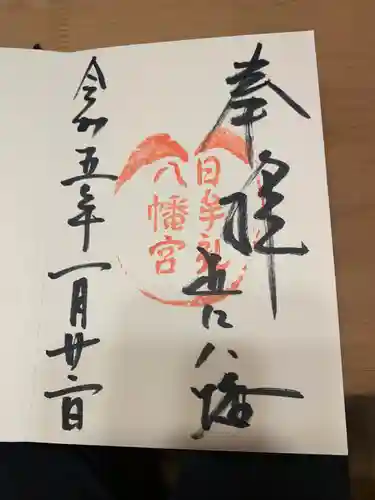 奉拝
近江八幡
日牟礼
八幡宮
令和五年一月廿二日